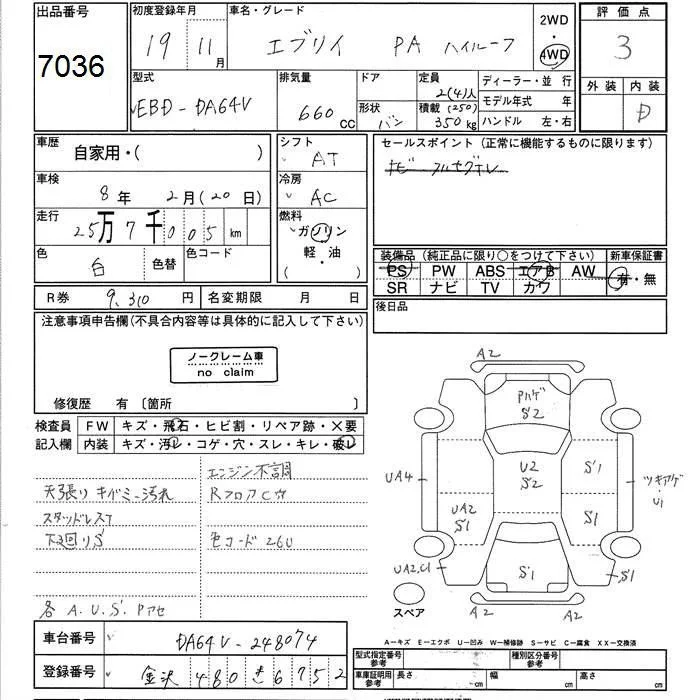 出品番号
7036
初度登録年月
19年 11月
車名・グレード
エブリイ PA ハイルーフ
2WD
・
4WD
評価点
3
外装 内装
D
型式
EBD-DA64V
排気量
660 CC
ドア
形状
バン
定員
2(4)人
積載 (250)
350kg
ディーラー・並行
モデル年式 年
ハンドル 左・右
車歴
自家用・( )
シフト
AT
セールスポイント(正常に機能するものに限ります)
車検
8年 2月(20日)
冷房
AC
走行
25万7千005km
燃料
ガソリン
軽・油
( )
色
白
色替
色コード
装備品(純正品に限り○をつけて下さい) 新車保証書
PS PW ABS エアB AW 有・無
SR ナビ TV カワ
R券 9,310円
名変期限 月 日
後日品
注意事項申告欄(不具合内容等は具体的に記入して下さい)
ノークレーム車
no claim
修復歴 有〔箇所 〕
検査員
記入欄
FW キズ・飛石・ヒビ割・リペア跡・×要
内装 キズ・汚レ・コゲ・穴・スレ・キレ・破レ
エンジン不調
天張り キバミ-汚れ
RフロアCカ
スタッドレス7
下廻りS
色コード 26U
各 A.U.S. Pアセ
A2
Pハゲ
S2
UA4
U2
S2
S1
ツキアゲ・U1
UA2
S1
S1
UA2.C1
S1
S1
スペア
A2
A2
A-キズ E-エクボ U-凹み W-補修跡 S-サビ C-腐食 XX-交換済
車台番号
DA64V-248074
登録番号
金沢 480 き 6752
型式指定番号
参考
種別区分番号
参考
車庫証明用
参考
長さ cm 幅 cm 高さ cm